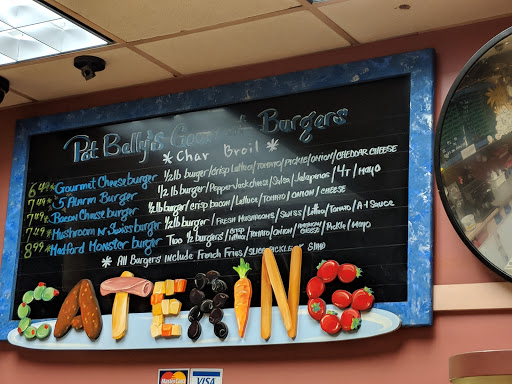 Pot Belly's Gourmet Burgers
* Char Broil *
6.49 * Gourmet Cheeseburger 1/2 lb burger/crisp Lettuce/Tomato/Pickle/Onion/CHEDDAR CHEESE
7.49 * 5 Alarm Burger 1/2 lb burger/PepperJack cheese/Salsa/Jalapenos/L/T/Mayo
7.49 * Bacon Cheese burger 1/2 lb burger/crisp bacon/Lettuce/Tomato/onion/cheese
7.49 * Mushroom n' Swiss burger 1/2 lb burger/FRESH MUSHROOMS/SWISS/Lettuce/Tomato/A-1 Sauce
8.99 * Medford Monster burger Two 1/2 burgers/crisp Lettuce/Tomato/onion/AMERICAN CHEESE/Pickle/Mayo
* All Burgers Include French Fries/SLICE PICKLE & Slaw
CATERING
MasterCard
VISA